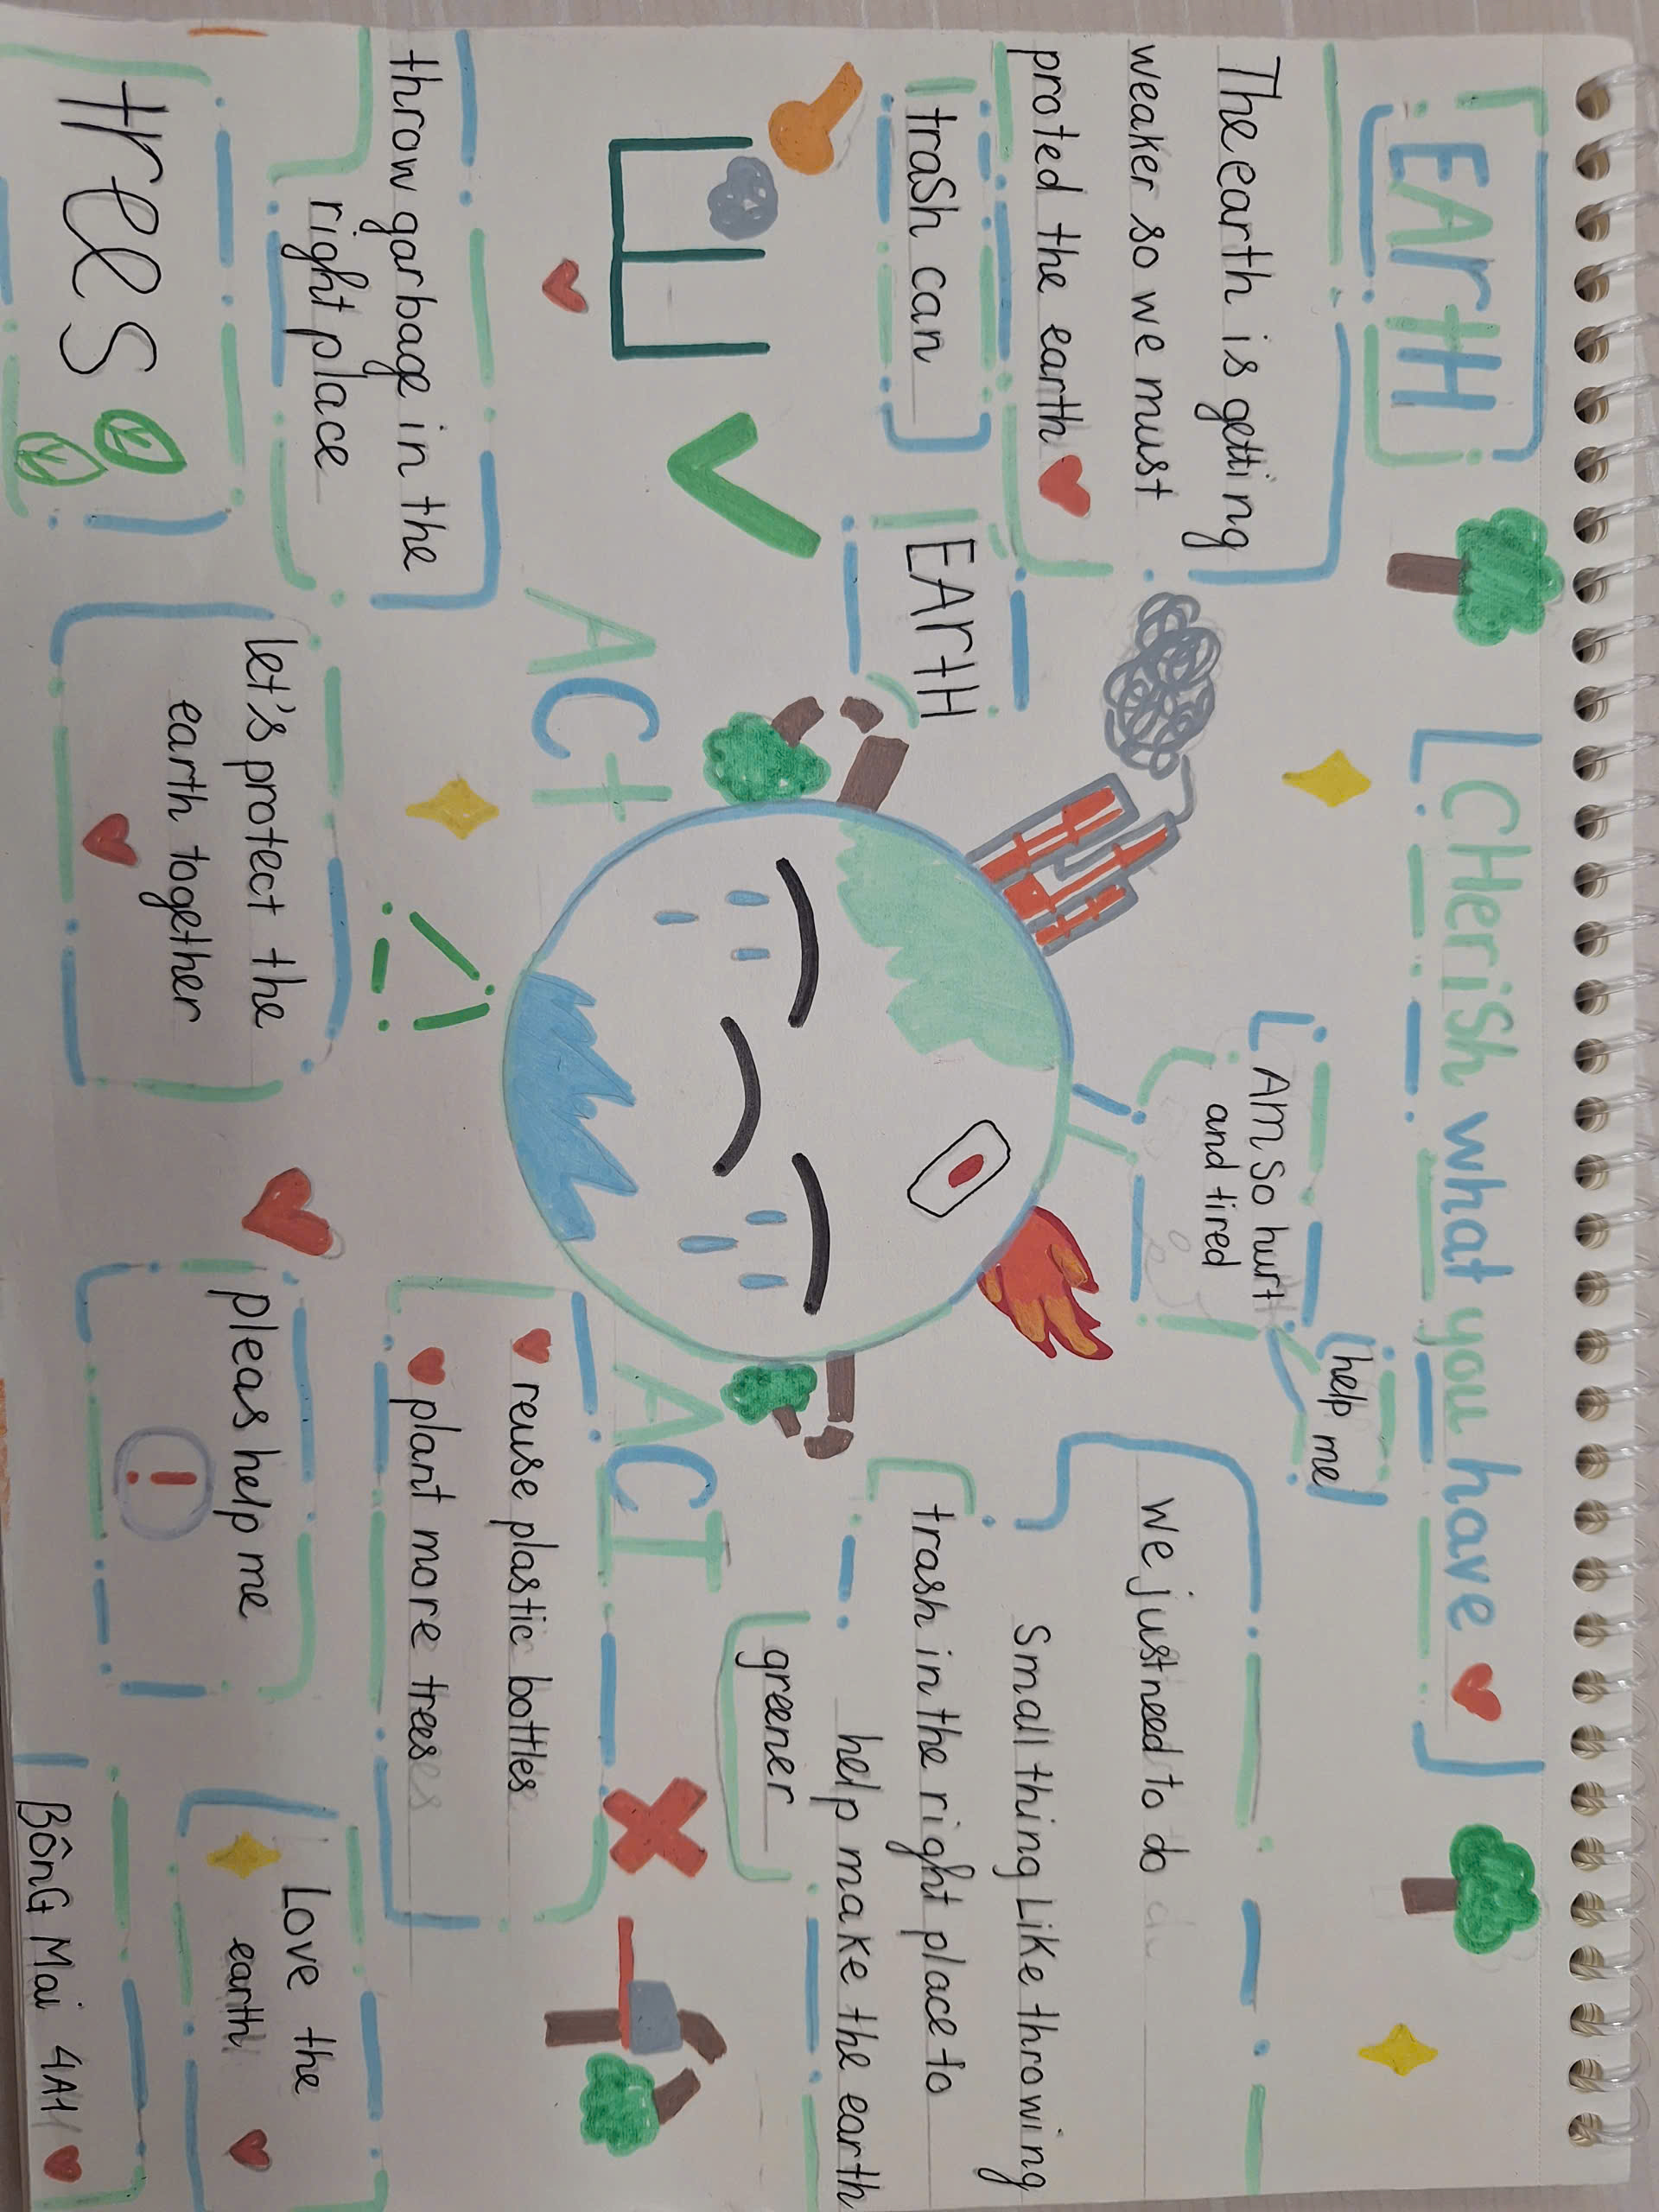 EArtH
CHeriSh what you have
The earth is getting
weaker so we must
proted the earth
Am So hurt
and tired
help me
we just need to do
Small thing Like throwing
trash in the right place to
help make the earth
greener
trash can
EArtH
ACt
ACT
throw garbage in the
right place
reuse plastic bottles
plant more trees
trees
let's protect the
earth together
pleas help me
!
Love the
earth
BônG Mai 4A1